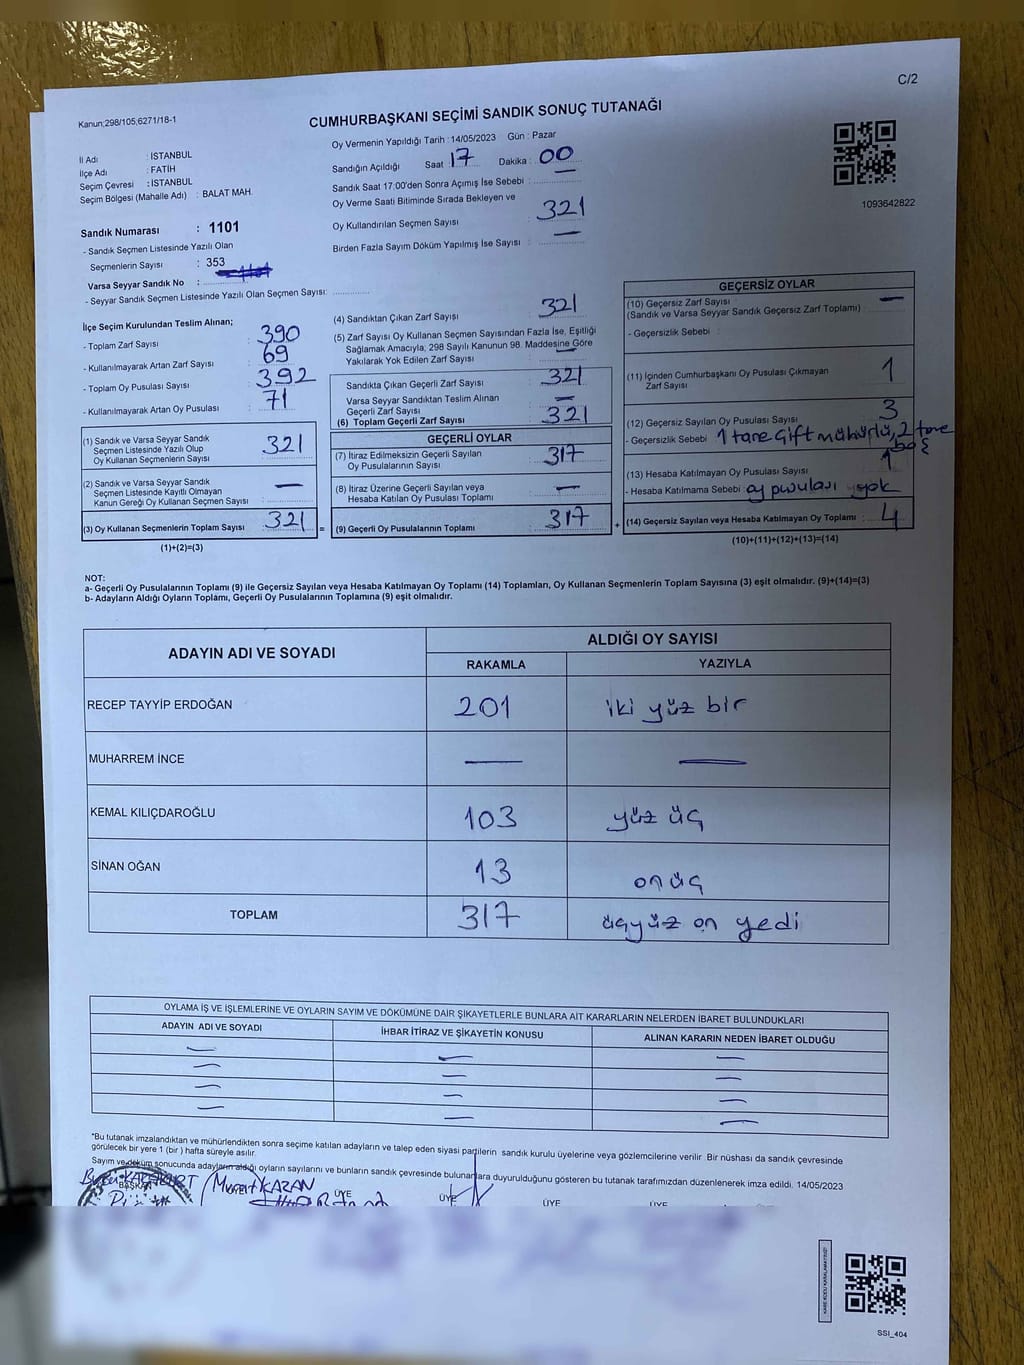 C/2
Kanun;298/105;6271/18-1
CUMHURBAŞKANI SEÇİMİ SANDIK SONUÇ TUTANAĞI
İl Adı : İSTANBUL
İlçe Adı : FATİH
Seçim Çevresi : İSTANBUL
Seçim Bölgesi (Mahalle Adı) : BALAT MAH.
Oy Vermenin Yapıldığı Tarih : 14/05/2023 Gün : Pazar
Sandığın Açıldığı Saat 17 Dakika : 00
Sandık Saat 17.00'den Sonra Açımış İse Sebebi :
Oy Verme Saati Bitiminde Sırada Bekleyen ve
Oy Kullandırılan Seçmen Sayısı 321
Birden Fazla Sayım Döküm Yapılmış İse Sayısı : —
1093642822
Sandık Numarası : 1101
- Sandık Seçmen Listesinde Yazılı Olan
Seçmenlerin Sayısı : 353
Varsa Seyyar Sandık No :
- Seyyar Sandık Seçmen Listesinde Yazılı Olan Seçmen Sayısı:
İlçe Seçim Kurulundan Teslim Alınan;
- Toplam Zarf Sayısı : 390
- Kullanılmayarak Artan Zarf Sayısı : 69
- Toplam Oy Pusulası Sayısı : 392
- Kullanılmayarak Artan Oy Pusulası : 71
(1) Sandık ve Varsa Seyyar Sandık
Seçmen Listesinde Yazılı Olup
Oy Kullanan Seçmenlerin Sayısı : 321
(2) Sandık ve Varsa Seyyar Sandık
Seçmen Listesinde Kayıtlı Olmayan
Kanun Gereği Oy Kullanan Seçmen Sayısı : —
(3) Oy Kullanan Seçmenlerin Toplam Sayısı : 321 =
(1)+(2)=(3)
(4) Sandıktan Çıkan Zarf Sayısı : 321
(5) Zarf Sayısı Oy Kullanan Seçmen Sayısından Fazla İse, Eşitliği
Sağlamak Amacıyla, 298 Sayılı Kanunun 98. Maddesine Göre
Yakılarak Yok Edilen Zarf Sayısı : —
Sandıkta Çıkan Geçerli Zarf Sayısı : 321
Varsa Seyyar Sandıktan Teslim Alınan
Geçerli Zarf Sayısı : —
(6) Toplam Geçerli Zarf Sayısı : 321
GEÇERLİ OYLAR
(7) İtiraz Edilmeksizin Geçerli Sayılan
Oy Pusulalarının Sayısı : 317
(8) İtiraz Üzerine Geçerli Sayılan veya
Hesaba Katılan Oy Pusulası Toplamı : —
(9) Geçerli Oy Pusulalarının Toplamı : 317 +
GEÇERSİZ OYLAR
(10) Geçersiz Zarf Sayısı —
(Sandık ve Varsa Seyyar Sandık Geçersiz Zarf Toplamı) :
- Geçersizlik Sebebi :
(11) İçinden Cumhurbaşkanı Oy Pusulası Çıkmayan
Zarf Sayısı : 1
(12) Geçersiz Sayılan Oy Pusulası Sayısı : 3
- Geçersizlik Sebebi 1 tane çift mühürlü, 2 tane
boş
(13) Hesaba Katılmayan Oy Pusulası Sayısı : 1
- Hesaba Katılmama Sebebi oy pusulası yok
(14) Geçersiz Sayılan veya Hesaba Katılmayan Oy Toplamı : 4
(10)+(11)+(12)+(13)=(14)
NOT:
a- Geçerli Oy Pusulalarının Toplamı (9) ile Geçersiz Sayılan veya Hesaba Katılmayan Oy Toplamı (14) Toplamları, Oy Kullanan Seçmenlerin Toplam Sayısına (3) eşit olmalıdır. (9)+(14)=(3)
b- Adayların Aldığı Oyların Toplamı, Geçerli Oy Pusulalarının Toplamına (9) eşit olmalıdır.
ADAYIN ADI VE SOYADI ALDIĞI OY SAYISI
RAKAMLA YAZIYLA
RECEP TAYYİP ERDOĞAN 201 iki yüz bir
MUHARREM İNCE — —
KEMAL KILIÇDAROĞLU 103 yüz üç
SİNAN OĞAN 13 on üç
TOPLAM 317 üçyüz on yedi
OYLAMA İŞ VE İŞLEMLERİNE VE OYLARIN SAYIM VE DÖKÜMÜNE DAİR ŞİKAYETLERLE BUNLARA AİT KARARLARIN NELERDEN İBARET BULUNDUKLARI
ADAYIN ADI VE SOYADI İHBAR İTİRAZ VE ŞİKAYETİN KONUSU ALINAN KARARIN NEDEN İBARET OLDUĞU
— — —
— — —
— — —
— — —
*Bu tutanak imzalandıktan ve mühürlendikten sonra seçime katılan adayların ve talep eden siyasi partilerin sandık kurulu üyelerine veya gözlemcilerine verilir. Bir nüshası da sandık çevresinde
görülecek bir yere 1 (bir ) hafta süreyle asılır.
Sayım ve döküm sonucunda adayların aldığı oyların sayılarını ve bunların sandık çevresinde bulunanlara duyurulduğunu gösteren bu tutanak tarafımızdan düzenlenerek imza edildi. 14/05/2023
Murat KAZAN
BAŞKAN ÜYE ÜYE ÜYE ÜYE ÜYE
SSI_404